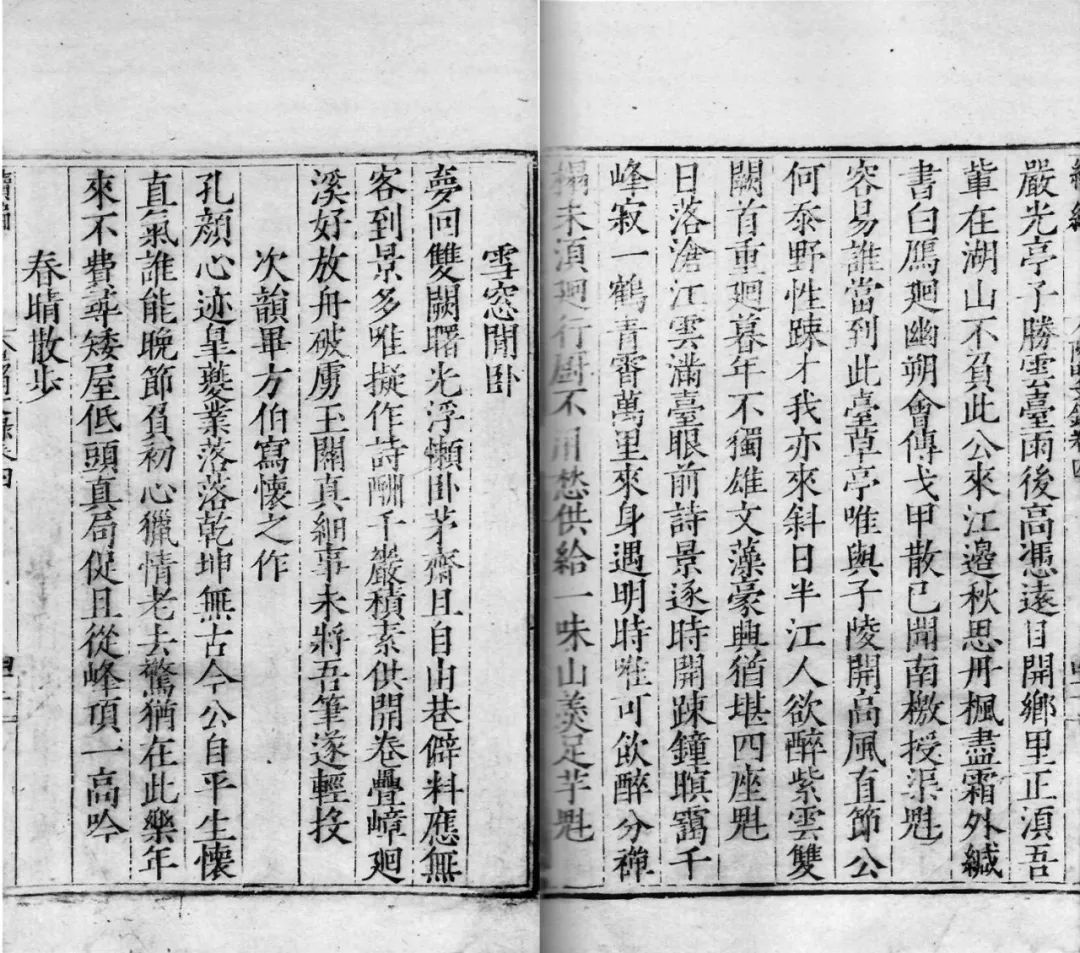 嚴光亭子勝雲臺雨後高憑遠目開鄉里正湏吾
軰在湖山不負此公來江邊秋思丹楓盡霜外緘
書白鴈廻幽朔會傳戈甲散已聞南檄授渠魁
容易誰當到此臺草亭唯與子陵開高風直節公
何忝野性踈才我亦來斜日半江人欲醉紫雲雙
闕首重廻暮年不獨雄文藻豪興猶堪四座魁
日落滄江雲滿臺眼前詩景逐時開踈鐘暝靄千
峰寂一鶴青霄萬里來身遇明時唯可飲醉分禪
榻未湏廻行厨不用愁供給一味山羮足芋魁
雪窓閒卧
夢回雙闕曙光浮懶卧茅齋且自由巷僻料應無
客到景多唯擬作詩酬千巖積素供開卷疊嶂廻
溪好放舟破虜玉關真細事未將吾筆遂輕投
次韻畢方伯寫懷之作
孔顏心迹皇夔業落落乾坤無古今公自平生懷
直氣誰能晚節負初心獵情老去驚猶在此樂年
來不費尋矮屋低頭真局促且從峰頂一高吟
春晴散步